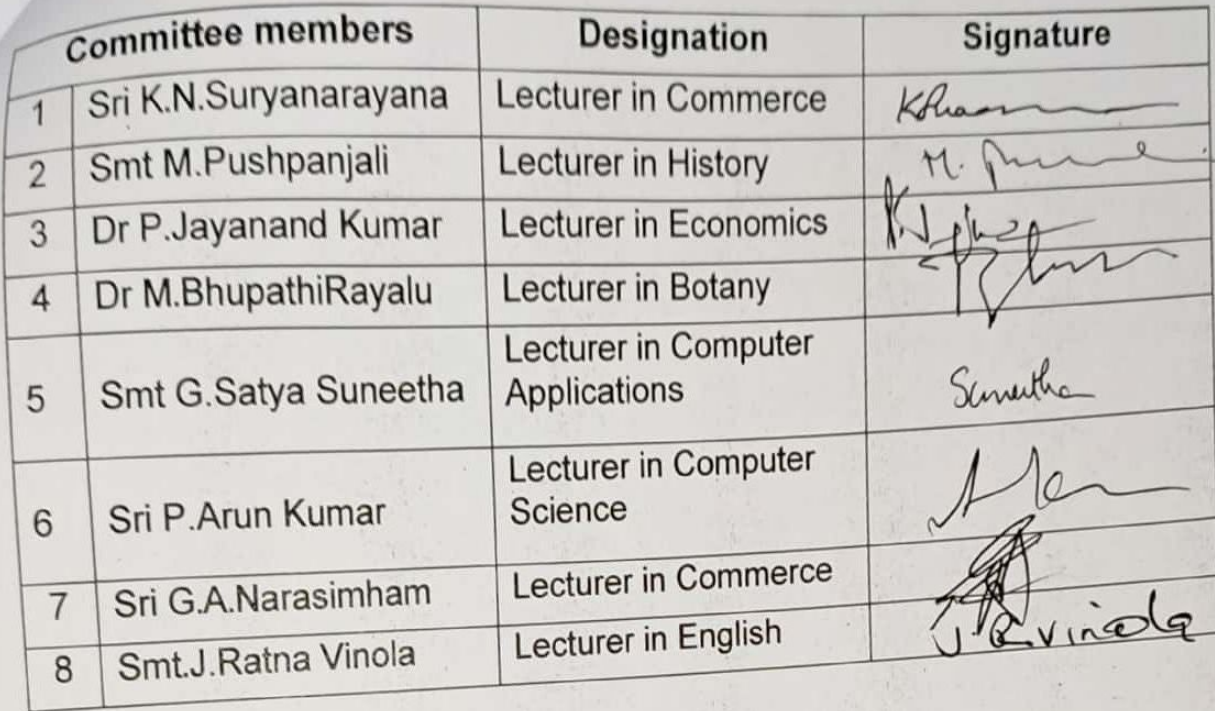 Committee members Designation Signature
1 Sri K.N.Suryanarayana Lecturer in Commerce
2 Smt M.Pushpanjali Lecturer in History M.
3 Dr P.Jayanand Kumar Lecturer in Economics
4 Dr M.BhupathiRayalu Lecturer in Botany
Lecturer in Computer
5 Smt G.Satya Suneetha Applications Suneetha
Lecturer in Computer
6 Sri P.Arun Kumar Science
7 Sri G.A.Narasimham Lecturer in Commerce
8 Smt.J.Ratna Vinola Lecturer in English J.R.Vinola